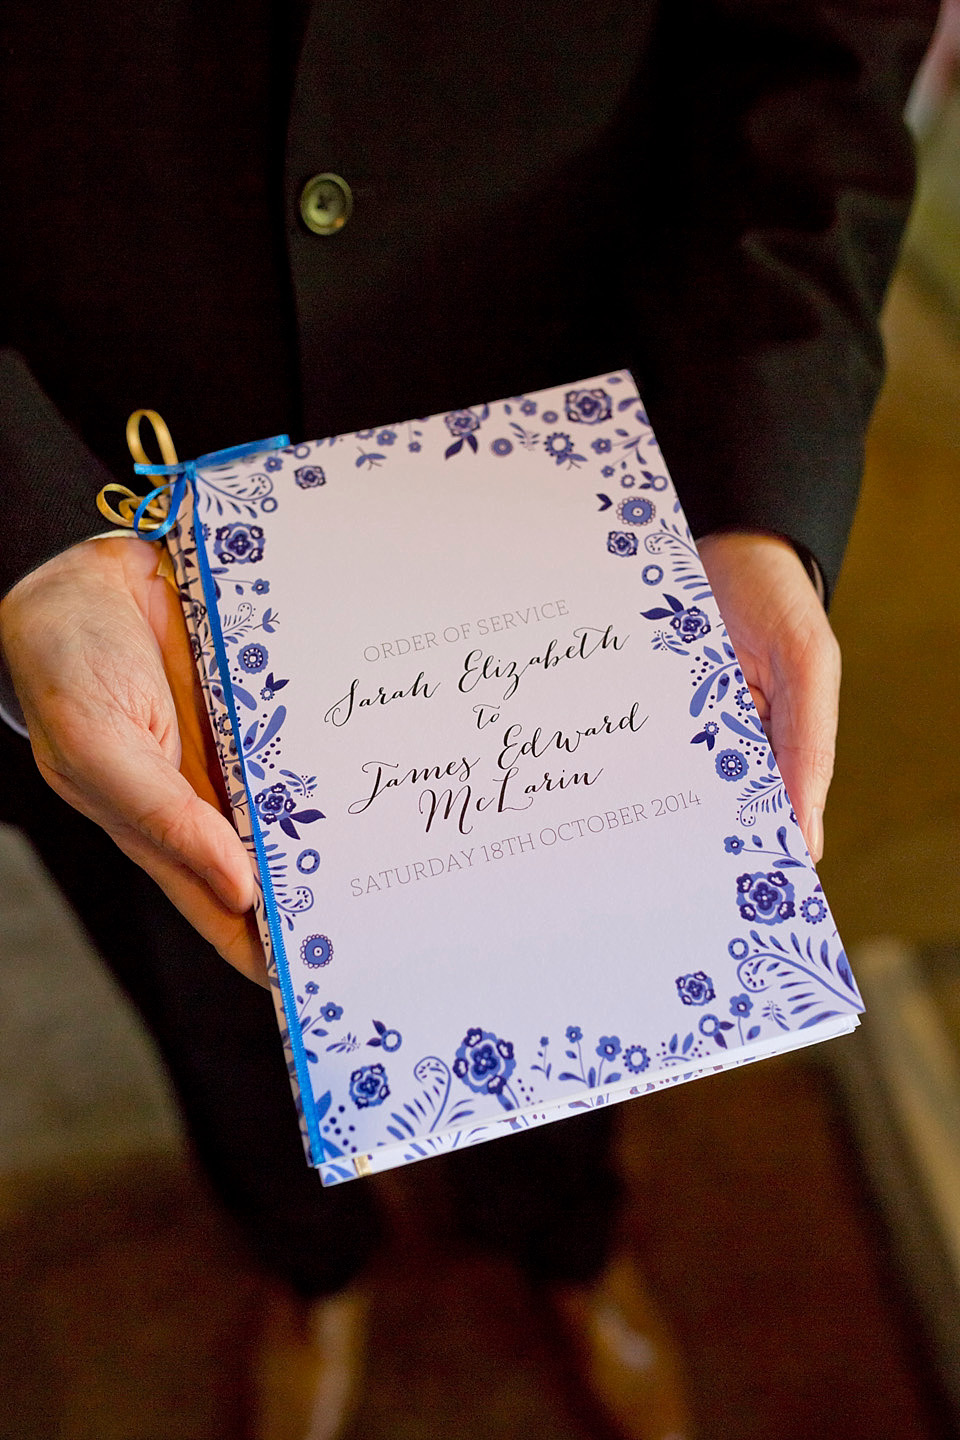 ORDER OF SERVICE
Sarah Elizabeth
to
James Edward
McLarin
SATURDAY 18TH OCTOBER 2014